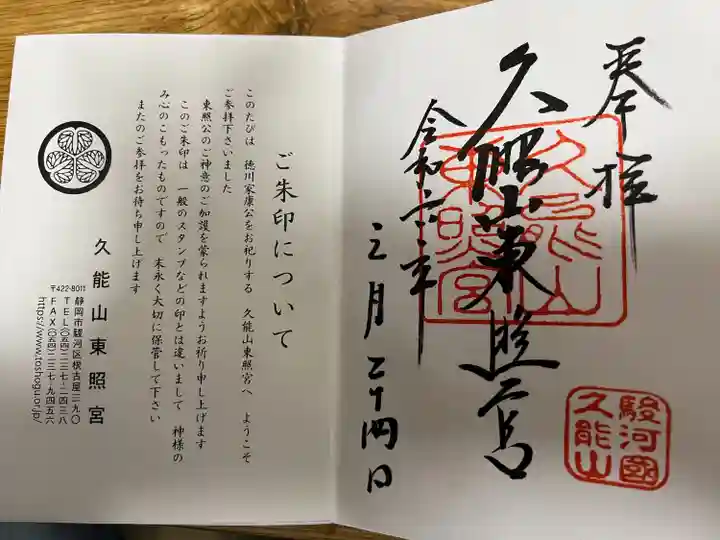 奉拝
久能山東照宮
令和六年
三月二十四日
久能山
東照宮
駿河國
久能山
ご朱印について
このたびは 徳川家康公をお祀りする 久能山東照宮へ ようこそ
ご参拝下さいました
東照公のご神意のご加護を蒙られますようお祈り申し上げます
このご朱印は 一般のスタンプなどの印とは違いまして 神様の
み心のこもったものですので 末永く大切に保管して下さい
またのご参拝をお待ち申し上げます
久能山東照宮
〒422-8011
静岡市駿河区根古屋三九〇
TEL(〇五四)二三七-二四三八
FAX(〇五四)二三七-九四五六
https://www.toshogu.or.jp/